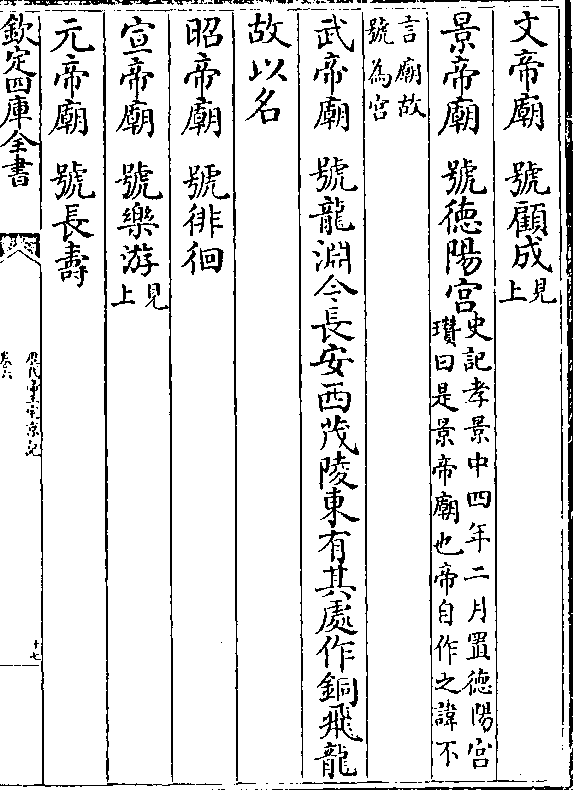 文帝廟　號顧成見上
景帝廟　號徳陽宮史記孝景中四年二月置徳陽宮
瓚曰是景帝廟也帝自作之諱不
言廟故
號為宫
武帝廟　號龍淵今長安西茂陵東有其處作銅飛龍
故以名
昭帝廟　號徘徊
宣帝廟　號樂游見上
元帝廟　號長壽
欽定四庫全書
歴代帝王宅京記
卷六
十七